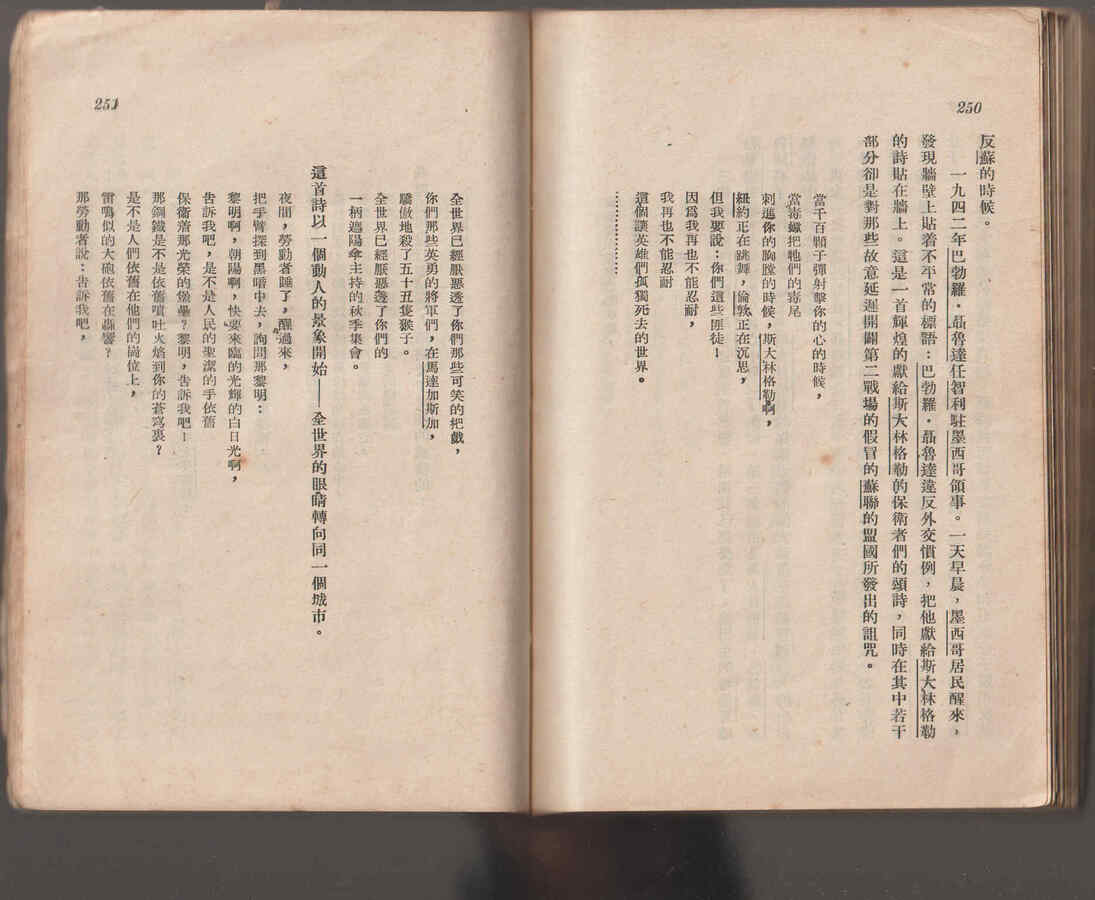 250
反蘇的時候。
一九四二年巴勃羅·聶魯達任智利駐墨西哥領事。一天早晨，墨西哥居民醒來，
發現牆壁上貼着不平常的標語：巴勃羅·聶魯達違反外交慣例，把他獻給斯大林格勒
的詩貼在牆上。這是一首輝煌的獻給斯大林格勒的保衛者們的頌詩，同時在其中若干
部分卻是對那些故意延遲開闢第二戰場的假冒的蘇聯的盟國所發出的詛咒。
當千百顆子彈射擊你的心的時候，
當毒蠍把牠們的毒尾
刺進你的胸膛的時候，斯大林格勒啊，
紐約正在跳舞，倫敦正在沉思，
但我要說：你們這些匪徒！
因爲我再也不能忍耐，
我再也不能忍耐
這個讓英雄們孤獨死去的世界。
………………
251
全世界已經厭惡透了你們那些可笑的把戲，
你們那些英勇的將軍們，在馬達加斯加，
驕傲地殺了五十五隻猴子。
全世界已經厭惡透了你們的
一柄遮陽傘主持的秋季集會。
這首詩以一個動人的景象開始——全世界的眼睛轉向同一個城市。
夜間，勞動者睡了，醒過來，
把手臂探到黑暗中去，詢問那黎明：
黎明啊，朝陽啊，快要來臨的光輝的白日光啊，
告訴我吧，是不是人民的聖潔的手依舊
保衛着那光榮的堡壘？黎明，告訴我吧！
那鋼鐵是不是依舊噴吐火焰到你的蒼穹裏？
是不是人們依舊在他們的崗位上，
雷鳴似的大砲依舊在轟響？
那勞動者說：告訴我吧，